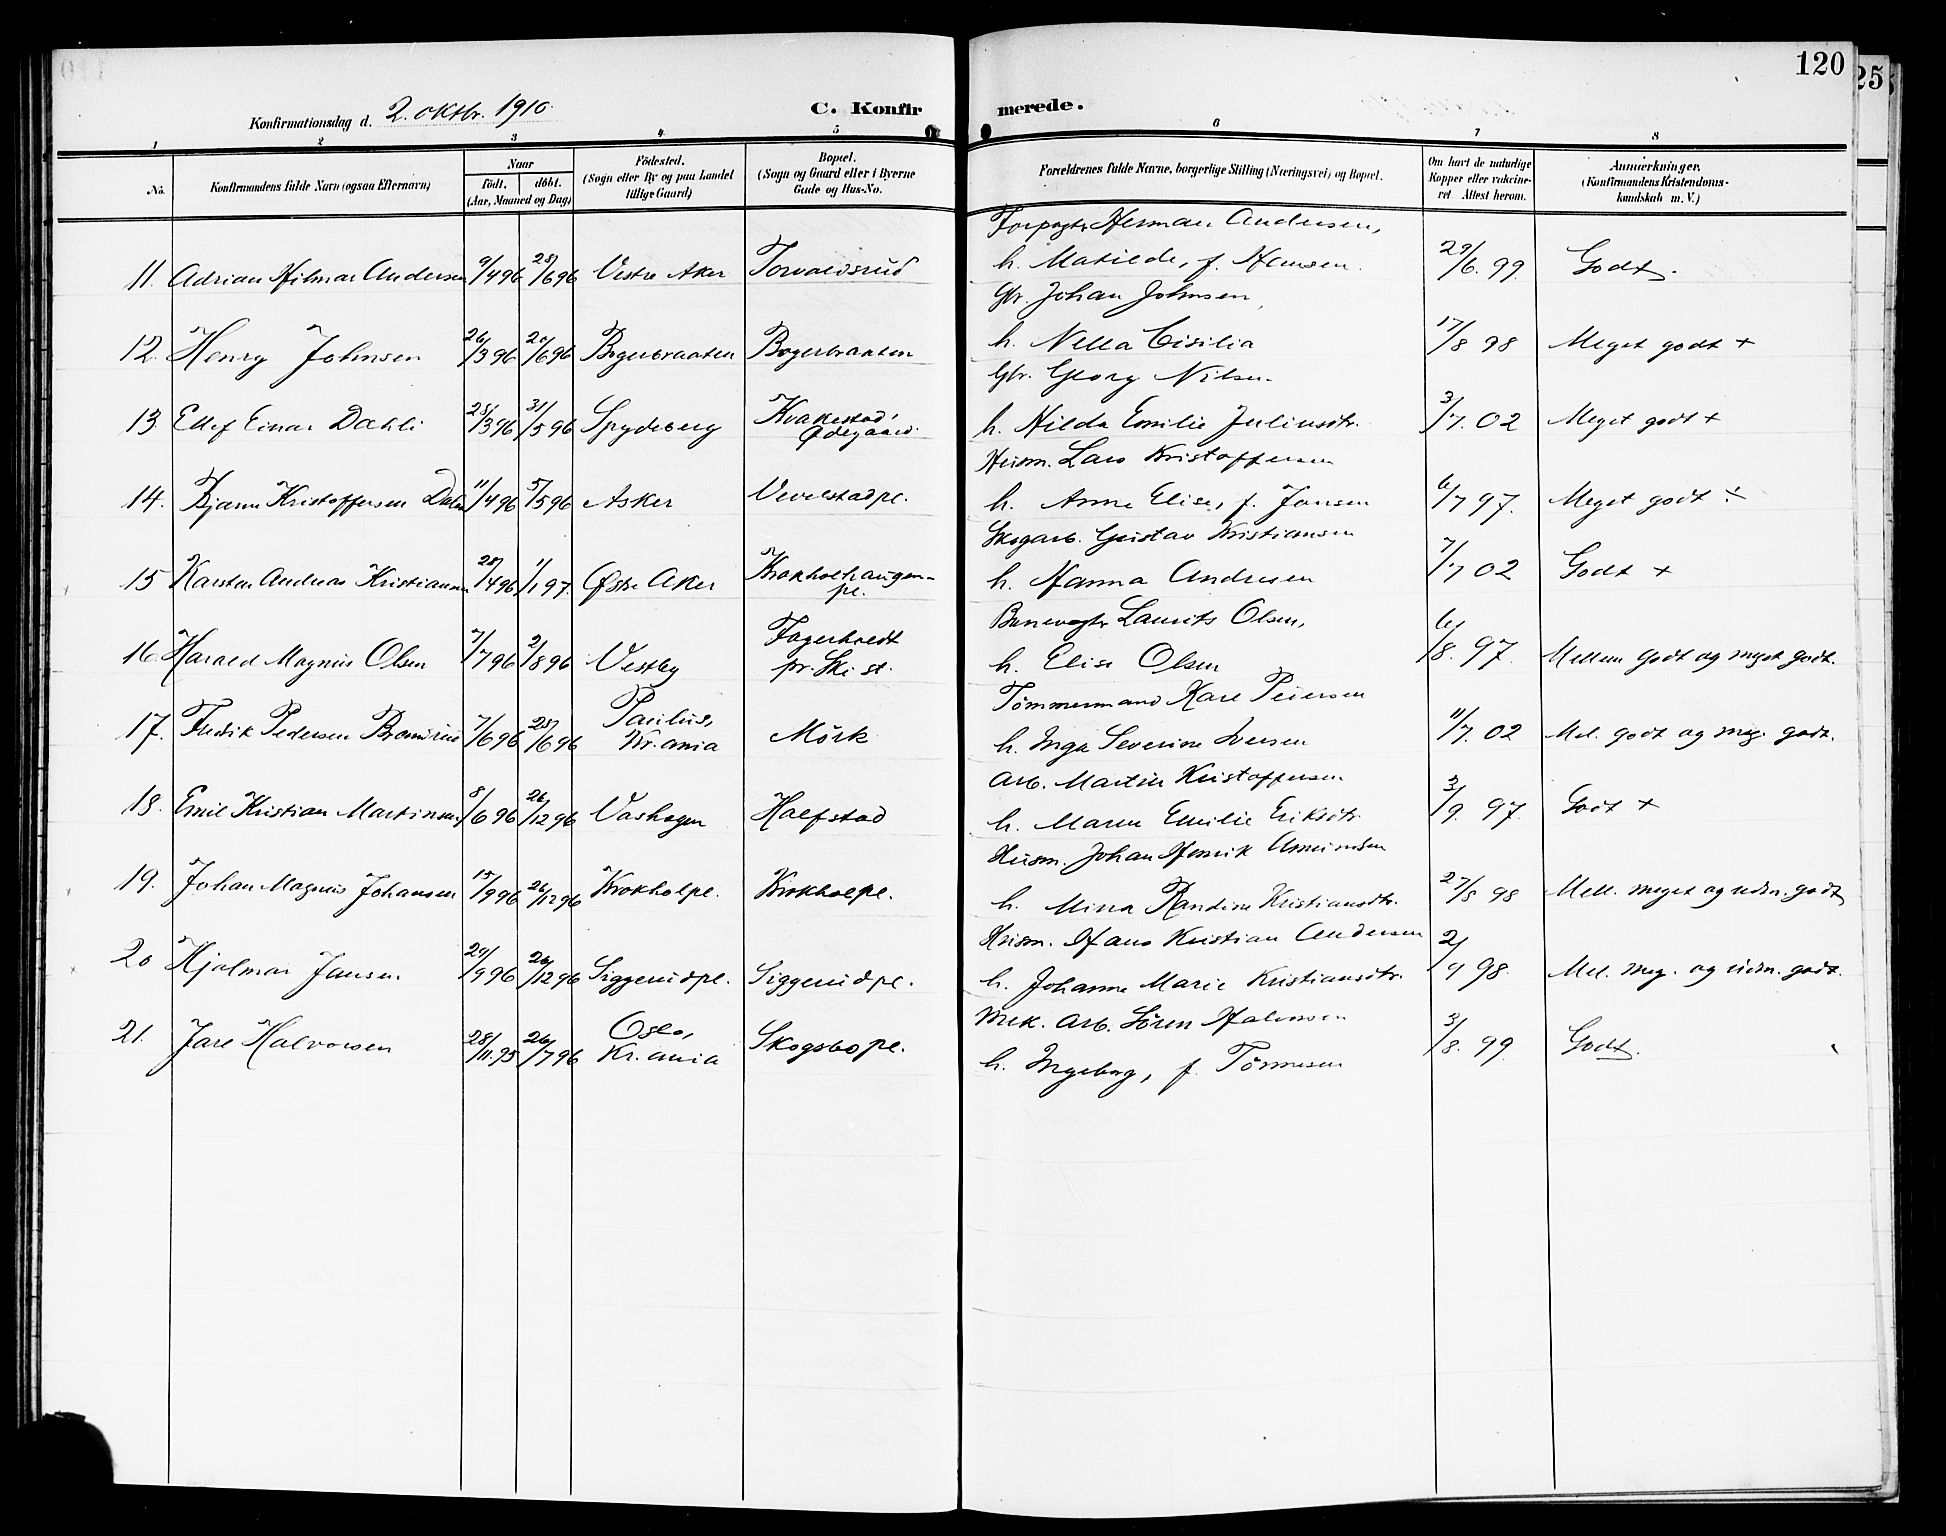 120
25
Konfirmationsdag d. 2. oktbr. 1910.
C. Konfir
merede.
1 2 3 4 5 6 7 8
No. Konfirmandens fulde Navn (ogsaa Efternavn) Naar født, døbt. (Aar, Maaned og Dag) Fødested. (Sogn eller By og paa Landet tillige Gaard) Bopæl. (Sogn og Gaard eller i Byerne Gade og Hus-No. Forældrenes fulde Navne, borgerlige Stilling (Næringsvei) og Bopæl. Om havt de naturlige Kopper eller vaksineret. Attest herom. Anmærkninger. (Konfirmandens Kristendomskundskab m. V.)
Forpagtr Herman Andersen,
11. Adrian Hilmar Andersen 9/4 96 28/6 96 Vestre Aker Torvaldsrud h. Matilde, f. Hansen. 29/6. 99. Godt.
Gbr. Johan Johnsen,
12. Henry Johnsen 26/3 96 20/6 96 Bøgerbraaten Bøgerbraaten h. Nella Cisilia 17/8 98 Meget godt +
Gbr. Georg Nilsen
13. Ellef Einar Dahli 28/3 96 31/5 96 Spydeberg Kvakestad, Ødegaard. h. Hilda Emilie Juliusdtr. 3/7. 02 Meget godt +
Husm. Lars Kristoffersen
14. Bjarne Kristoffersen 11/4 96 5/5 96 Asker Vevelstadpl. h. Anne Elise, f. Jansen 6/7 97. Meget godt +
Skogarb. Gustav Kristiansen
15 Karsten Andreas Kristiansen 28/4 96 1/1 97. Østre Aker Krokholhaugen-pl. h. Hanna Andresen 7/7 02 Godt +
Banevogtr Laurits Olsen,
16. Harald Magnus Olsen 7/7 96 2/8 96 Vestby Fagerholdt pr. Ski st. h. Elise Olsen 6/8. 97. Mellem godt og meget godt.
Tömmermand Karl Petersen
17. Fredrik Pedersen 7/6 96 28/6 96 Paulus, Kr.ania Mörk h. Inga Severine Iversen 11/7. 02 Mel. godt og meg. godt.
Arb. Martin Kristoffersen
18. Emil Kristian Martinsen 8/6 96 26/12 96 Vashagen Halfstad h. Maren Emilie Eriksdtr. 3/9. 97. Godt +
Husm. Johan Henrik
19. Johan Magnus Johansen 15/9 96 26/12 96 Krokholpl. Krokholpl. h. Mina Randine Kristiansdtr. 27/8 98 Mell. meget og udm. godt
Husm. Hans Kristian Andersen
20 Hjalmar Jansen 29/9 96 26/12 96 Siggerudpl. Siggerudpl. h. Johanne Marie Kristiansdtr. 2/9 98. Mel. meg. og udm. godt.
Mek. arb. Sören
21. Jarl Halvorsen 28/11. 95 26/7 96 Oslo, Kr.ania Skogsbopl. h. Ingeborg, f. Tönnesen 3/8. 99. Godt.